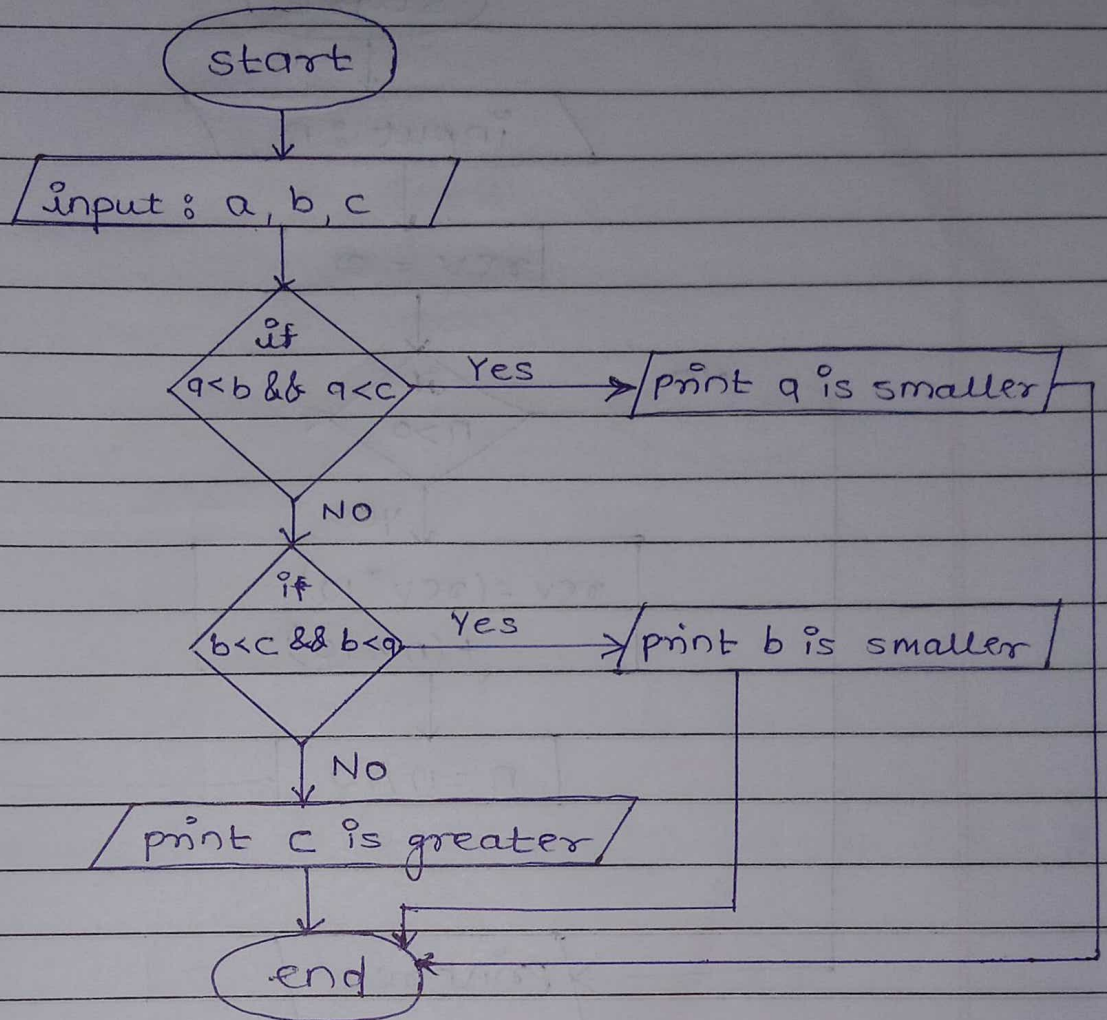 start
input : a, b, c
if
a<b && a<c
Yes
print a is smaller
NO
if
b<c && b<a
Yes
print b is smaller
NO
print c is greater
end